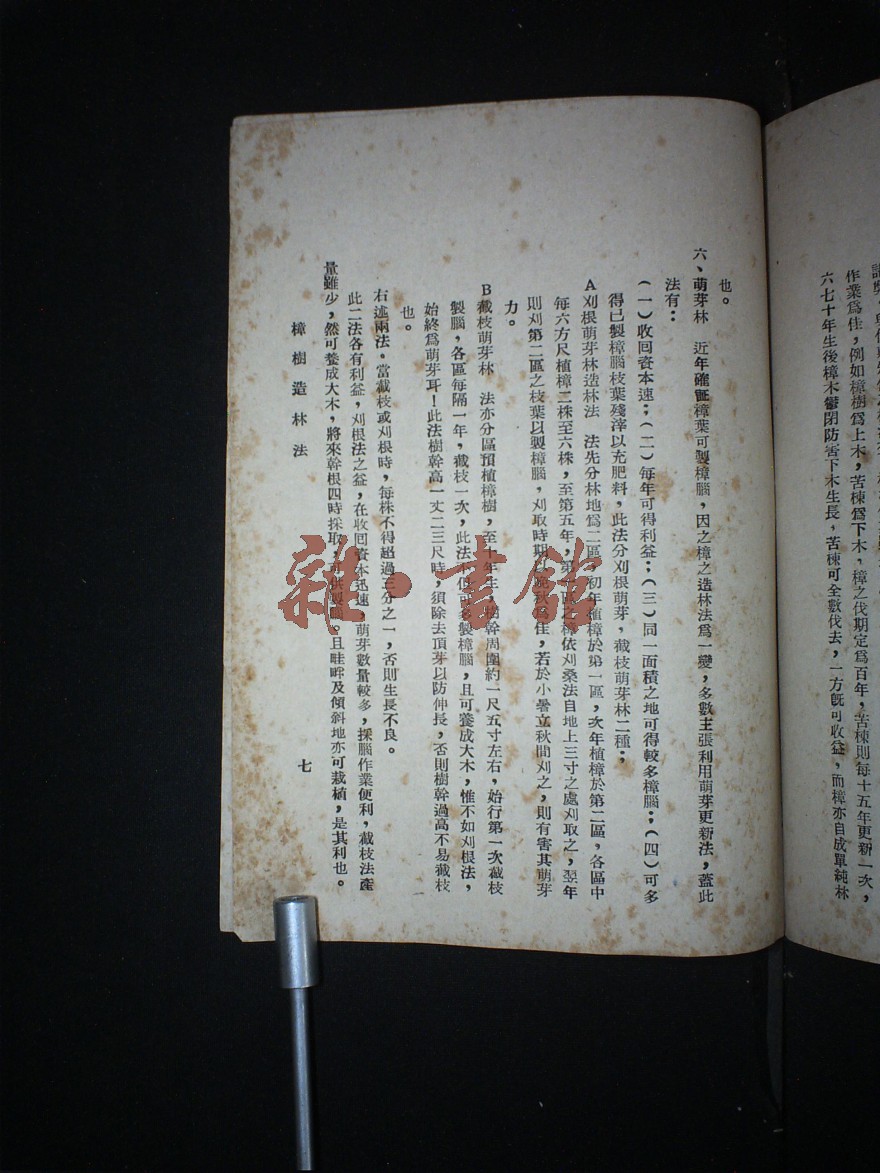 作業爲佳，例如樟樹爲上木，苦楝爲下木，樟之伐期定爲百年，苦楝則每十五年更新一次，
六七十年生後樟木鬱閉防害下木生長，苦楝可全數伐去，一方旣可收益，而樟亦自成單純林
也。
六、萌芽林　近年確証樟葉可製樟腦，因之樟之造林法爲一變，多數主張利用萌芽更新法，蓋此
法有：
（一）收回資本速；（二）每年可得利益；（三）同一面積之地可得較多樟腦；（四）可多
得已製樟腦枝葉殘滓以充肥料，此法分刈根萌芽，截枝萌芽林二種；
A刈根萌芽林造林法　法先分林地爲二區，初年植樟於第一區，次年植樟於第二區，各區中
每六方尺植樟二株至六株，至第五年，第一區之樟依刈桑法自地上三寸之處刈取之，翌年
則刈第二區之枝葉以製樟腦，刈取時期以晚秋爲佳，若於小暑立秋間刈之，則有害其萌芽
力。
B截枝萌芽林　法亦分區預植樟樹，至十年生，樹幹周圍約一尺五寸左右，始行第一次截枝
製腦，各區每隔一年，截枝一次，此法不但可多製樟腦，且可養成大木，惟不如刈根法，
始終爲萌芽耳！此法樹幹高一丈二三尺時，須除去頂芽以防伸長，否則樹幹過高不易截枝
也。
右述兩法。當截枝或刈根時，每株不得超過三分之一，否則生長不良。
此二法各有利益，刈根法之益，在收回資本迅速，萌芽數量較多，採腦作業便利，截枝法產
量雖少，然可養成大木，將來幹根四時採取，可供製腦。且畦畔及傾斜地亦可栽植，是其利也。
樟樹造林法
七
雜·書館